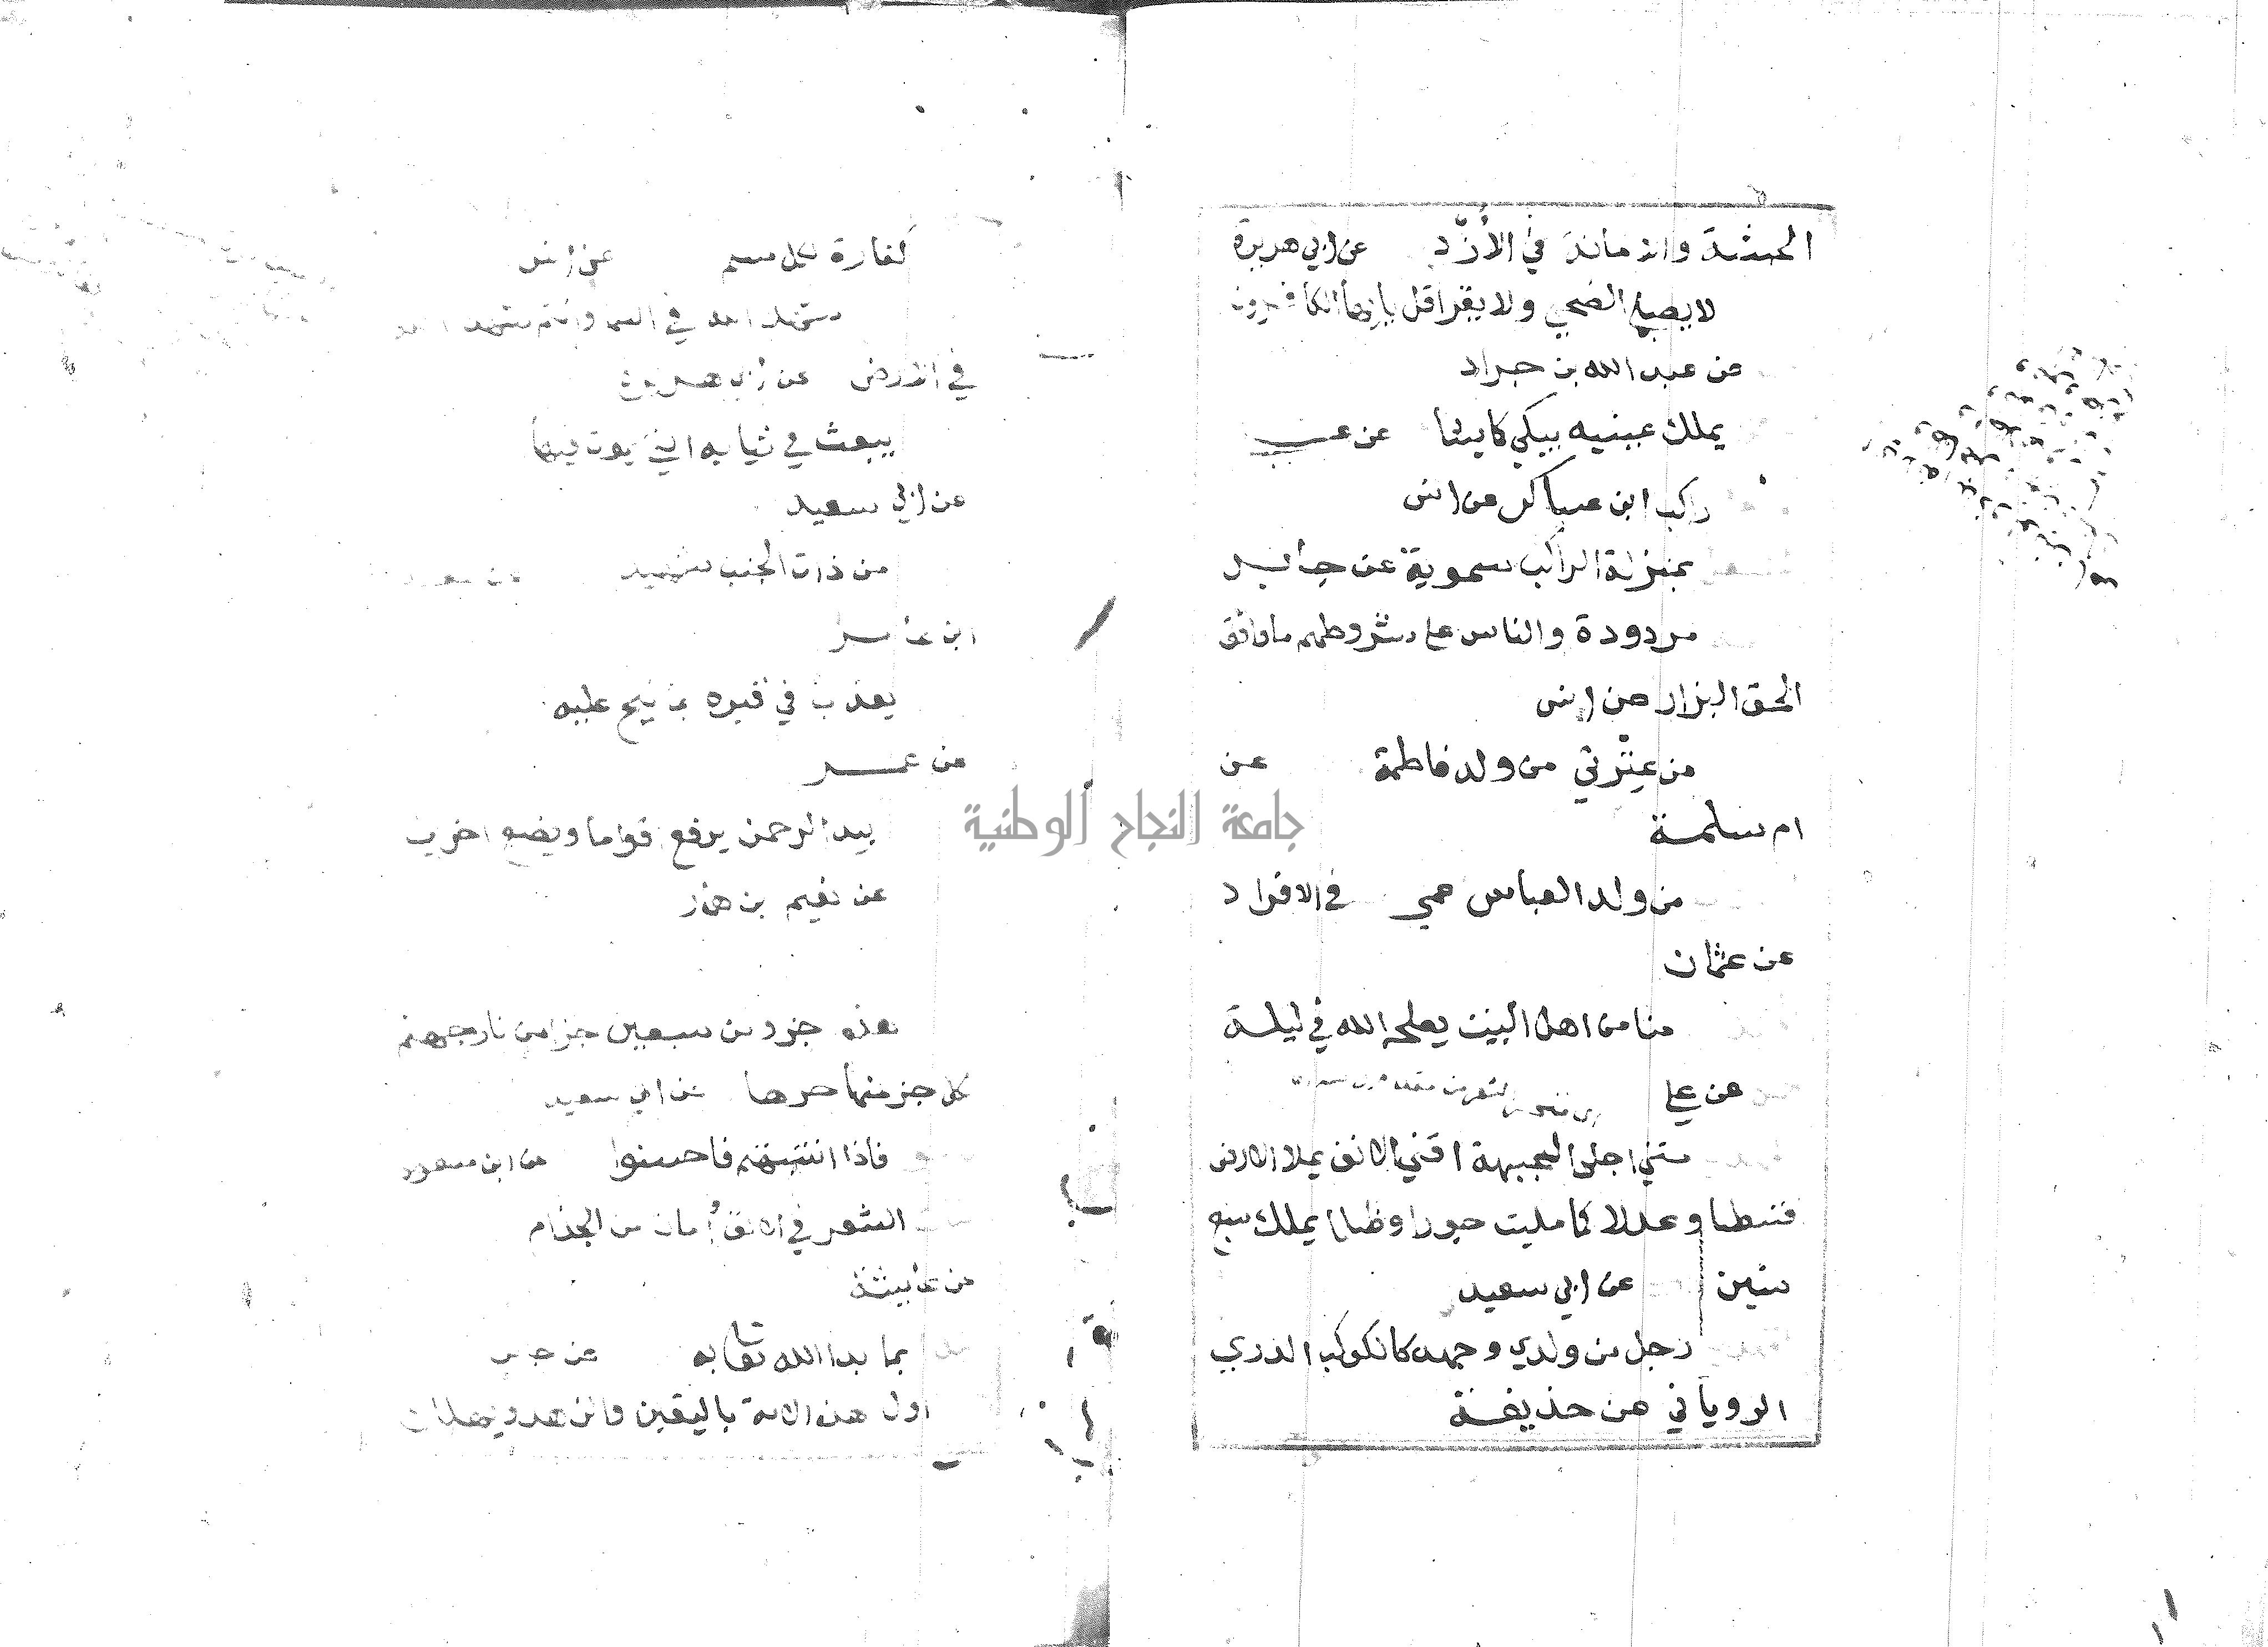 الحبشة والامانة في الأزْد عن ابي هريرة
لا يصلي الضحي ولا يقرا قل يا ايها الكافرون
عن عبد الله بن جراد
يملك عينيه يبكي كما يشا عن
راكب ابن عساكر عن انس
بمنزلة الراكب سموية عن جابر
مردودة والناس على شروطهم ما وافق
الحق البزار عن انس
من عِتْرتي من ولد فاطمة عن
ام سلمة
من ولد العباس عمي في الافراد
عن عثمان
منا من اهل البيت يصلحه الله في ليلة
عن علي
مني اجلى الجبهة اقني الانف يملا الارض
قسطا وعدلا كما مليت جورا وظلما يملك سبع
سنين عن ابي سعيد
رجل من ولدي وجهه كالكوكب الدري
الروياني عن حذيفة
كفارة لكل مسلم عن انس
شهدا الله في السما وانتم شهدا الله
في الارض عن ابي هريرة
يبعث في ثيابه التي يموت فيها
عن ابي سعيد
من ذات الجنب شهيد
ابن عامر
يعذب في قبره بما نيح عليه
عن عمر
بيد الرحمن يرفع قواما ويضع اخرين
عن نعيم بن
هذه جزو من سبعين جزا من نار جهنم
كل جز منها حرها عن ابي سعيد
فاذا انتهيتم فاحسنوا عن ابن مسعود
الشعر في الانف أمان من الجذام
عن عايشة
بما بدا الله تعالى به عن جابر
اول هذه الامة باليقين والزهد ويهلك
جامعة النجاح الوطنية